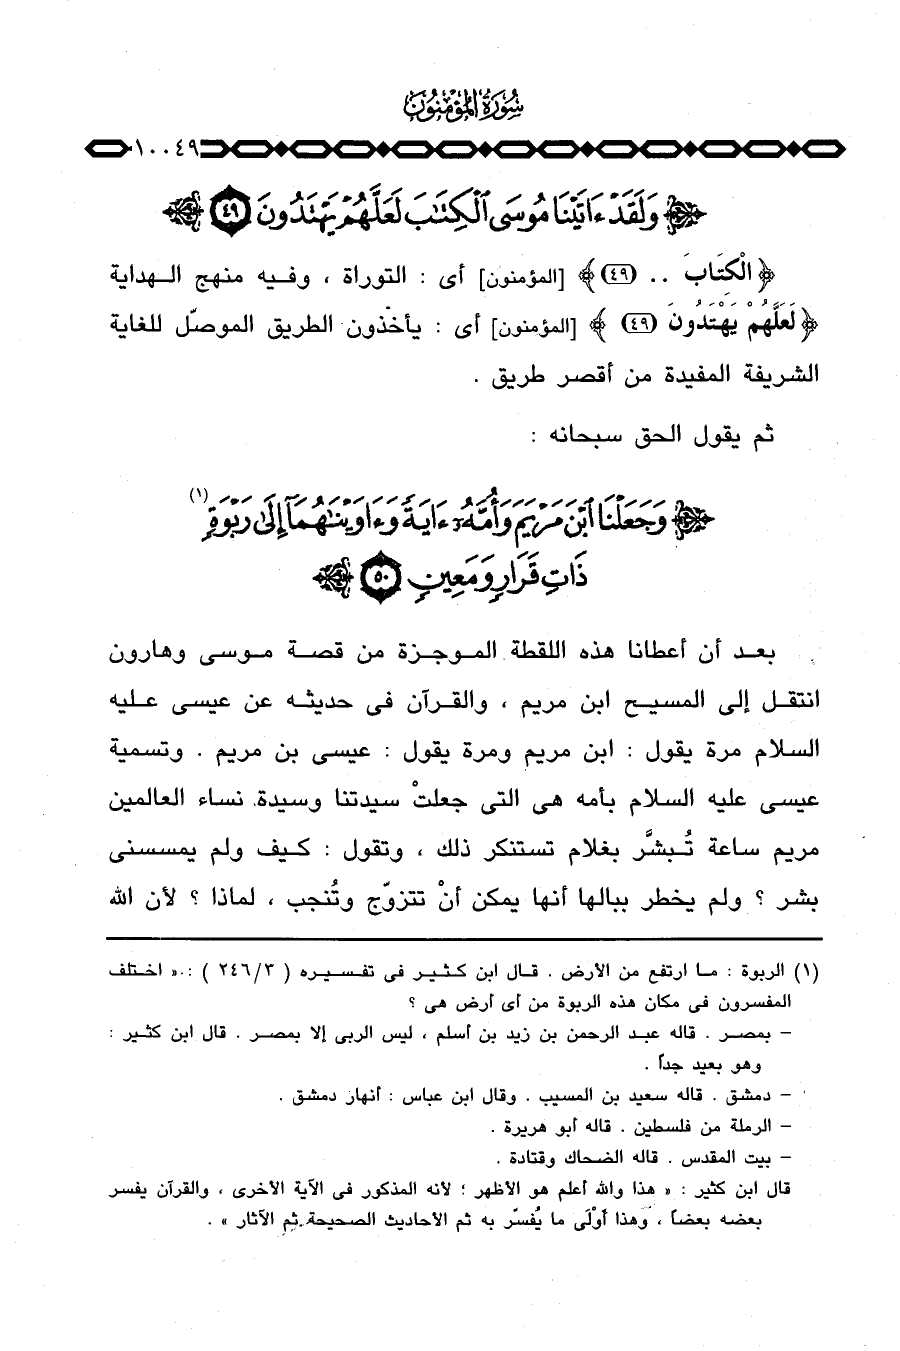 سُورَةُ المُؤْمِنُونَ
١٠٠٤٩
وَلَقَدْ ءَاتَيْنَا مُوسَى ٱلْكِتَٰبَ لَعَلَّهُمْ يَهْتَدُونَ ٤٩
﴿ الْكِتَابَ .. (٤٩) ﴾ [المؤمنون] أى : التوراة ، وفـيه منهج الـهداية
﴿ لَعَلَّهُمْ يَهْتَدُونَ (٤٩) ﴾ [المؤمنون] أى : يأخذون الطريق الموصّل للغاية
الشريفة المفيدة من أقصر طريق .
ثم يقول الحق سبحانه :
وَجَعَلْنَا ٱبْنَ مَرْيَمَ وَأُمَّهُۥٓ ءَايَةً وَءَاوَيْنَٰهُمَآ إِلَىٰ رَبْوَةٍ (١)
ذَاتِ قَرَارٍ وَمَعِينٍ ٥٠
بعـد أن أعطانا هذه اللقطة الموجزة من قصة موسى وهارون
انتقل إلى المسيح ابن مريم ، والقرآن فى حديثه عن عيسى عليه
السلام مرة يقول : ابن مريم ومرة يقول : عيسى بن مريم . وتسمية
عيسى عليه السلام بأمه هى التى جعلتْ سيدتنا وسيدة نساء العالمين
مريم ساعة تُبشَّر بغلام تستنكر ذلك ، وتقول : كيف ولم يمسسنى
بشر ؟ ولم يخطر ببالها أنها يمكن أنْ تتزوّج وتُنجب ، لماذا ؟ لأن الله
(١) الربوة : ما ارتفع من الأرض . قال ابن كثير فى تفسيره ( ٢٤٦/٣ ) : « اختلف
المفسرون فى مكان هذه الربوة من أى أرض هى ؟
– بمصر . قاله عبد الرحمن بن زيد بن أسلم ، ليس الربى إلا بمصر . قال ابن كثير :
وهو بعيد جداً .
– دمشق . قاله سعيد بن المسيب . وقال ابن عباس : أنهار دمشق .
– الرملة من فلسطين . قاله أبو هريرة .
– بيت المقدس . قاله الضحاك وقتادة .
قال ابن كثير : « هذا والله أعلم هو الأظهر ؛ لأنه المذكور فى الآية الأخرى ، والقرآن يفسر
بعضه بعضاً ، وهذا أَوْلَى ما يُفسّر به ثم الأحاديث الصحيحة ثم الآثار » .